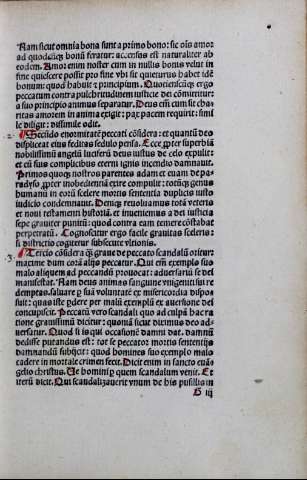 Nam sicut omnia bona sunt a primo bono: sic oīs amor
ad quodcūqȝ bonū feratur: accensus est naturaliter ab
eodem. Amor enim noster cum in nullis bonus velut in
fine quiescere possit pro sine vbi sit quieturus habet idē
bonum: quod habuit et principium. Quotienscūqȝ ergo
peccatum contra pulchritudinem iusticie dei cōmittitur:
a suo principio animus separatur. Deus em̄ cum sit cha-
ritas amorem in anima exigit: pax pacem requirit: simi-
le diligit: dissimile odit.
2. Secūdo enormitatē peccati cōsidera: et quantū deo
displiceat eius feditas sedulo pensa. Ecce propter superbiā
nobilissimū angelū luciferū deus iustus de celo expulit:
et cū suis complicibus eterni ignis incendio damnauit.
Primos quoqȝ nostros parentes adam et euam de pa-
radyso propter inobedientiā exire compulit: totūqȝ genus
humanū in eorū scelere mortis sententia duplicis iusto
iudicio condemnauit. Deniqȝ reuoluamus totā veteris
et noui testamenti historiā: et inueniemus a dei iusticia
sepe grauiter punitū: quod contra eam temere cōstabat
perpetratū. Cognoscitur ergo facile grauitas sceleris:
si districtio cogitetur subsecute vltionis.
3. Tercio cōsidera qȝ graue de peccato scandalū oritur:
maxime dum corā alijs peccatur. Qui em̄ exemplo suo
malo aliquem ad peccandū prouocat: aduersariū se dei
manifestat. Nam deus animas sanguine vnigeniti sui re
demptas saluare per suā voluntatē ex misericordia dispo
suit: quas iste perdere per malū exemplū et auersione dei
concupiscit. Peccatū vero scandali quo ad culpā hac ra
tione grauissimū dicitur: quoniā sicut diximus deo ad-
uersatur. Quod si is qui occasionē damni dat. damnū
dedisse putandus est: tot se peccator mortis sententijs
damnandū subijcit: quod homines suo exemplo malo
cadere in mortale crimen fecit. Dicit enim in sancto euā
gelio christus. Ve homini per quem scandalum venit. Et
iterū dicit. Qui scandalizauerit vnum de his pusillis in
G iij